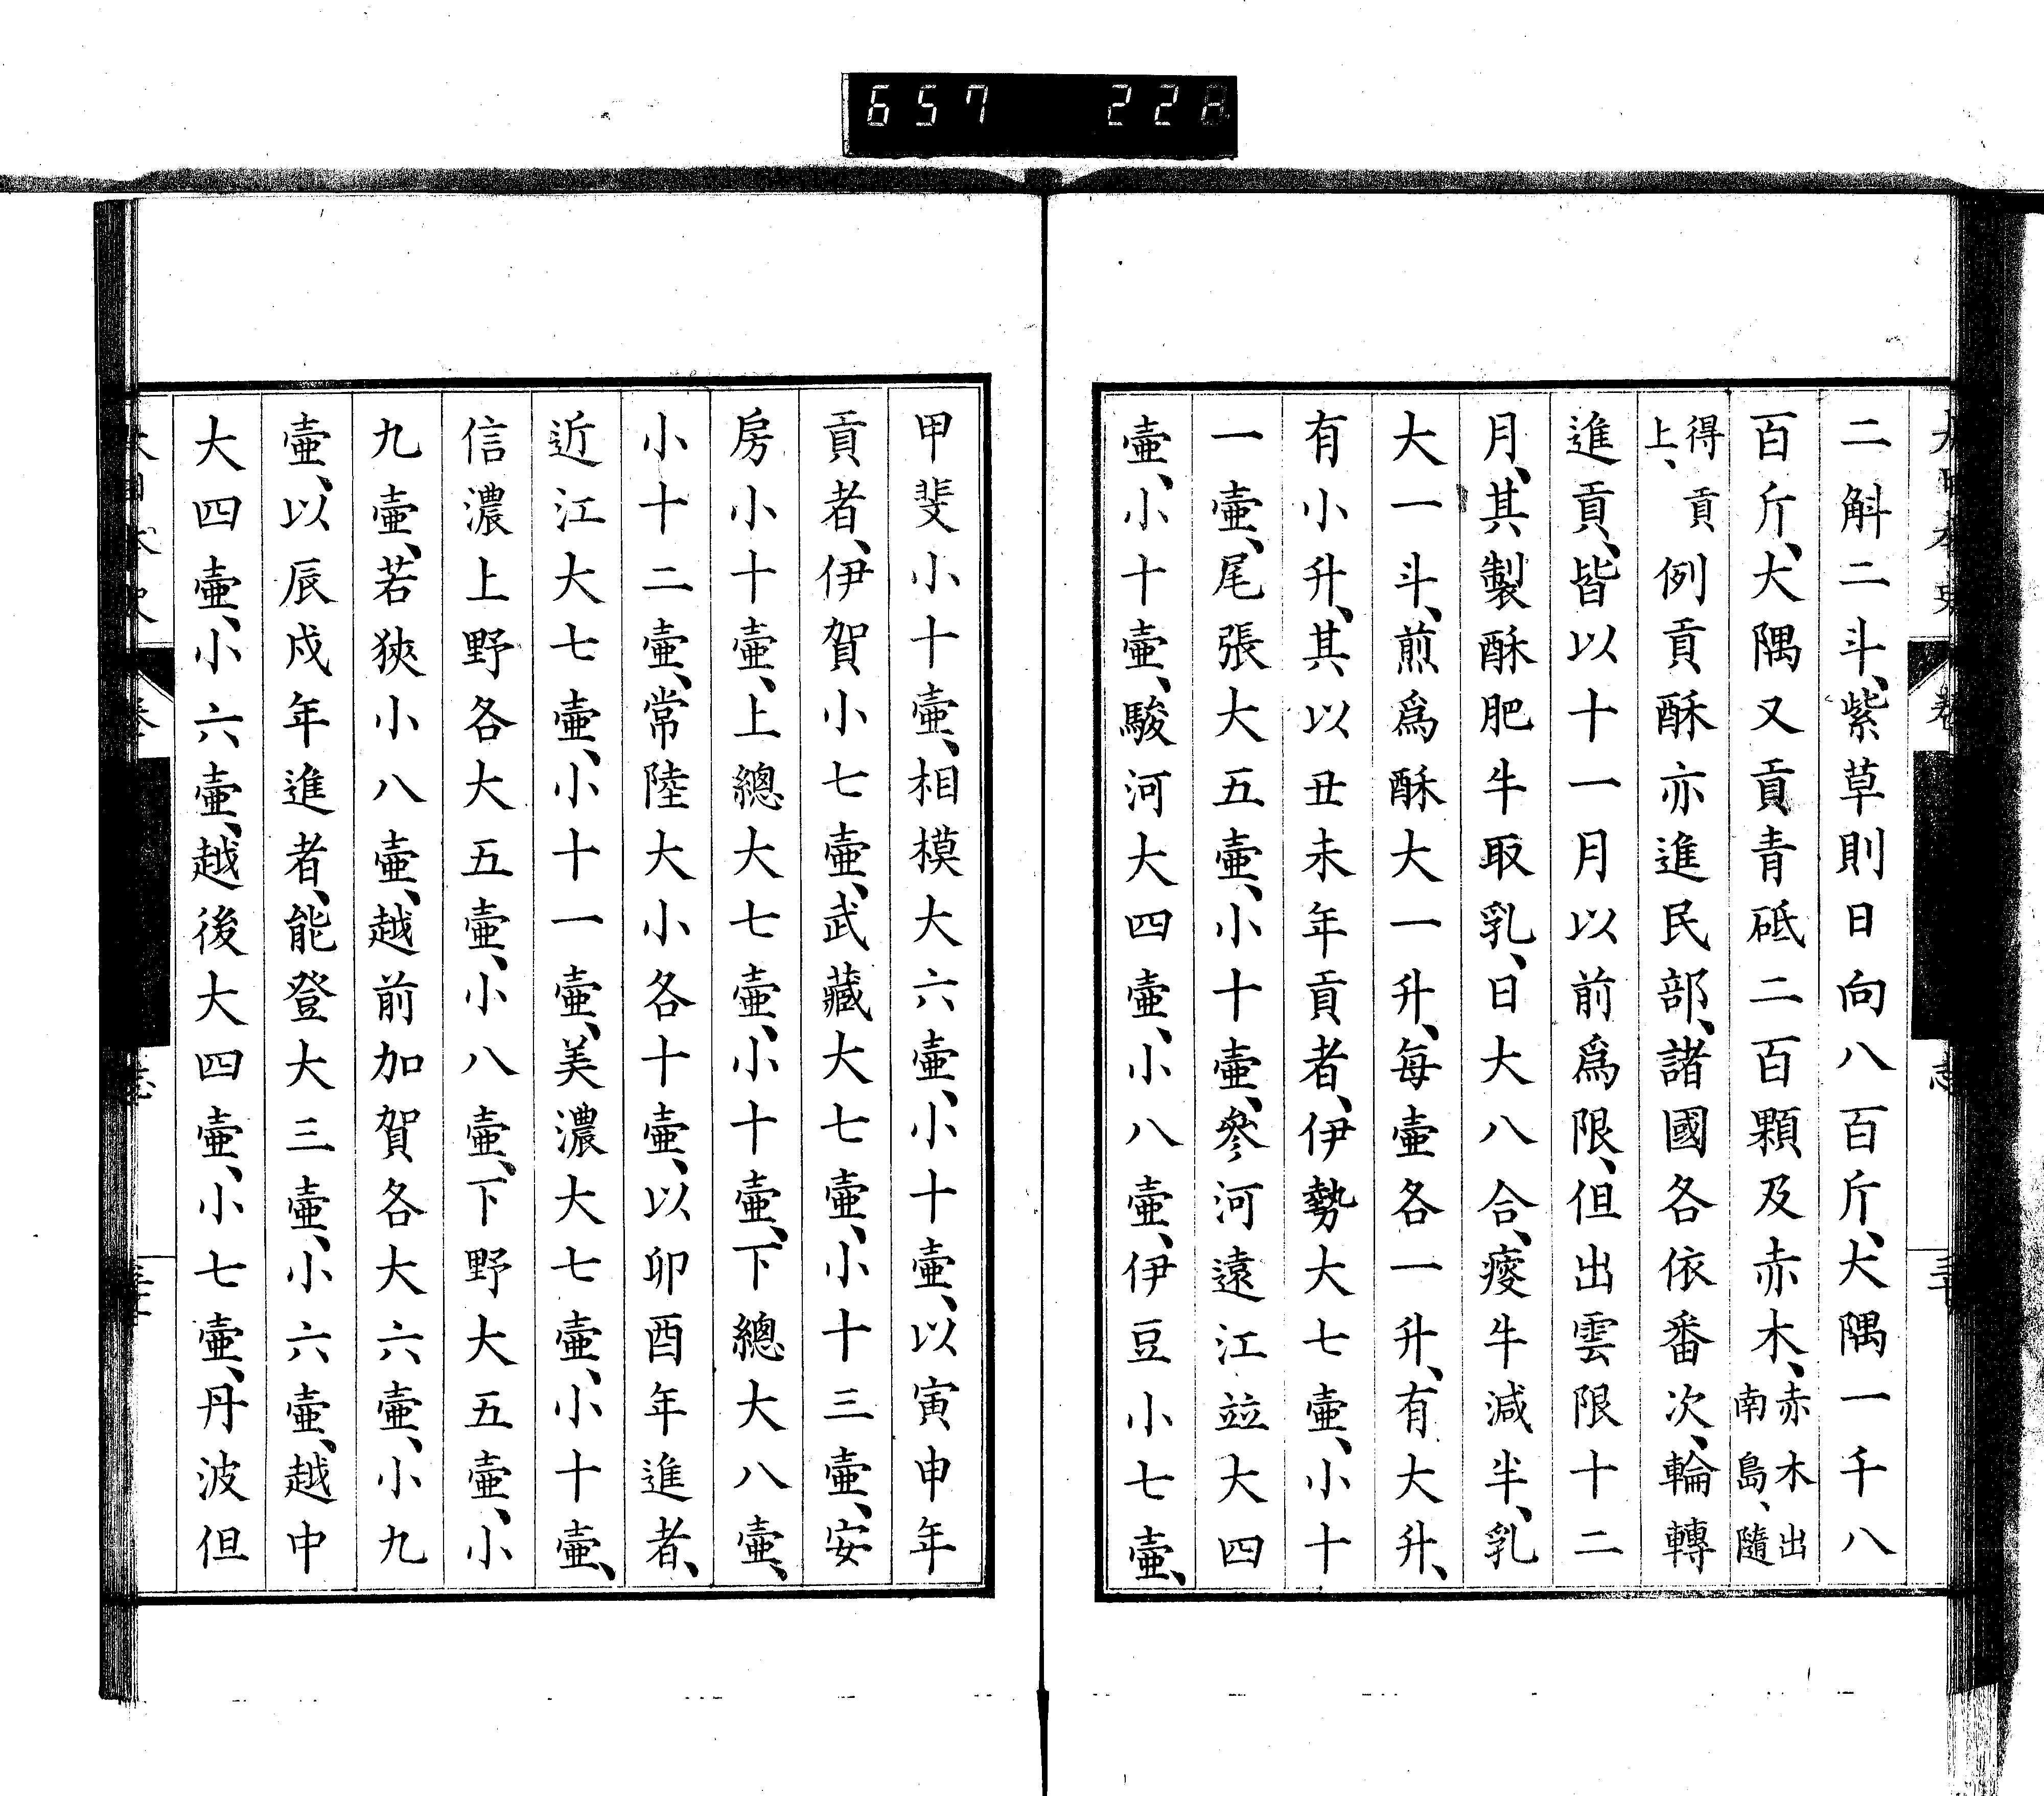 657 228
二斛二斗、紫草則日向八百斤、大隅一千八
百斤、大隅又貢青砥二百顆及赤木、赤木出南島、隨
得貢上、例貢酥亦進民部、諸國各依番次、輪轉
進貢、皆以十一月以前爲限、但出雲限十二
月、其製酥肥牛取乳、日大八合、瘦牛減半、乳
大一斗、煎爲酥大一升、每壷各一升、有大升、
有小升、其以丑未年貢者、伊勢大七壷、小十
一壷、尾張大五壷、小十壷、參河遠江竝大四
壷、小十壷、駿河大四壷、小八壷、伊豆小七壷、
甲斐小十壷、相模大六壷、小十壷、以寅申年
貢者、伊賀小七壷、武藏大七壷、小十三壷、安
房小十壷、上總大七壷、小十壷、下總大八壷、
小十二壷、常陸大小各十壷、以卯酉年進者、
近江大七壷、小十一壷、美濃大七壷、小十壷、
信濃上野各大五壷、小八壷、下野大五壷、小
九壷、若狹小八壷、越前加賀各大六壷、小九
壷、以辰戍年進者、能登大三壷、小六壷、越中
大四壷、小六壷、越後大四壷、小七壷、丹波但